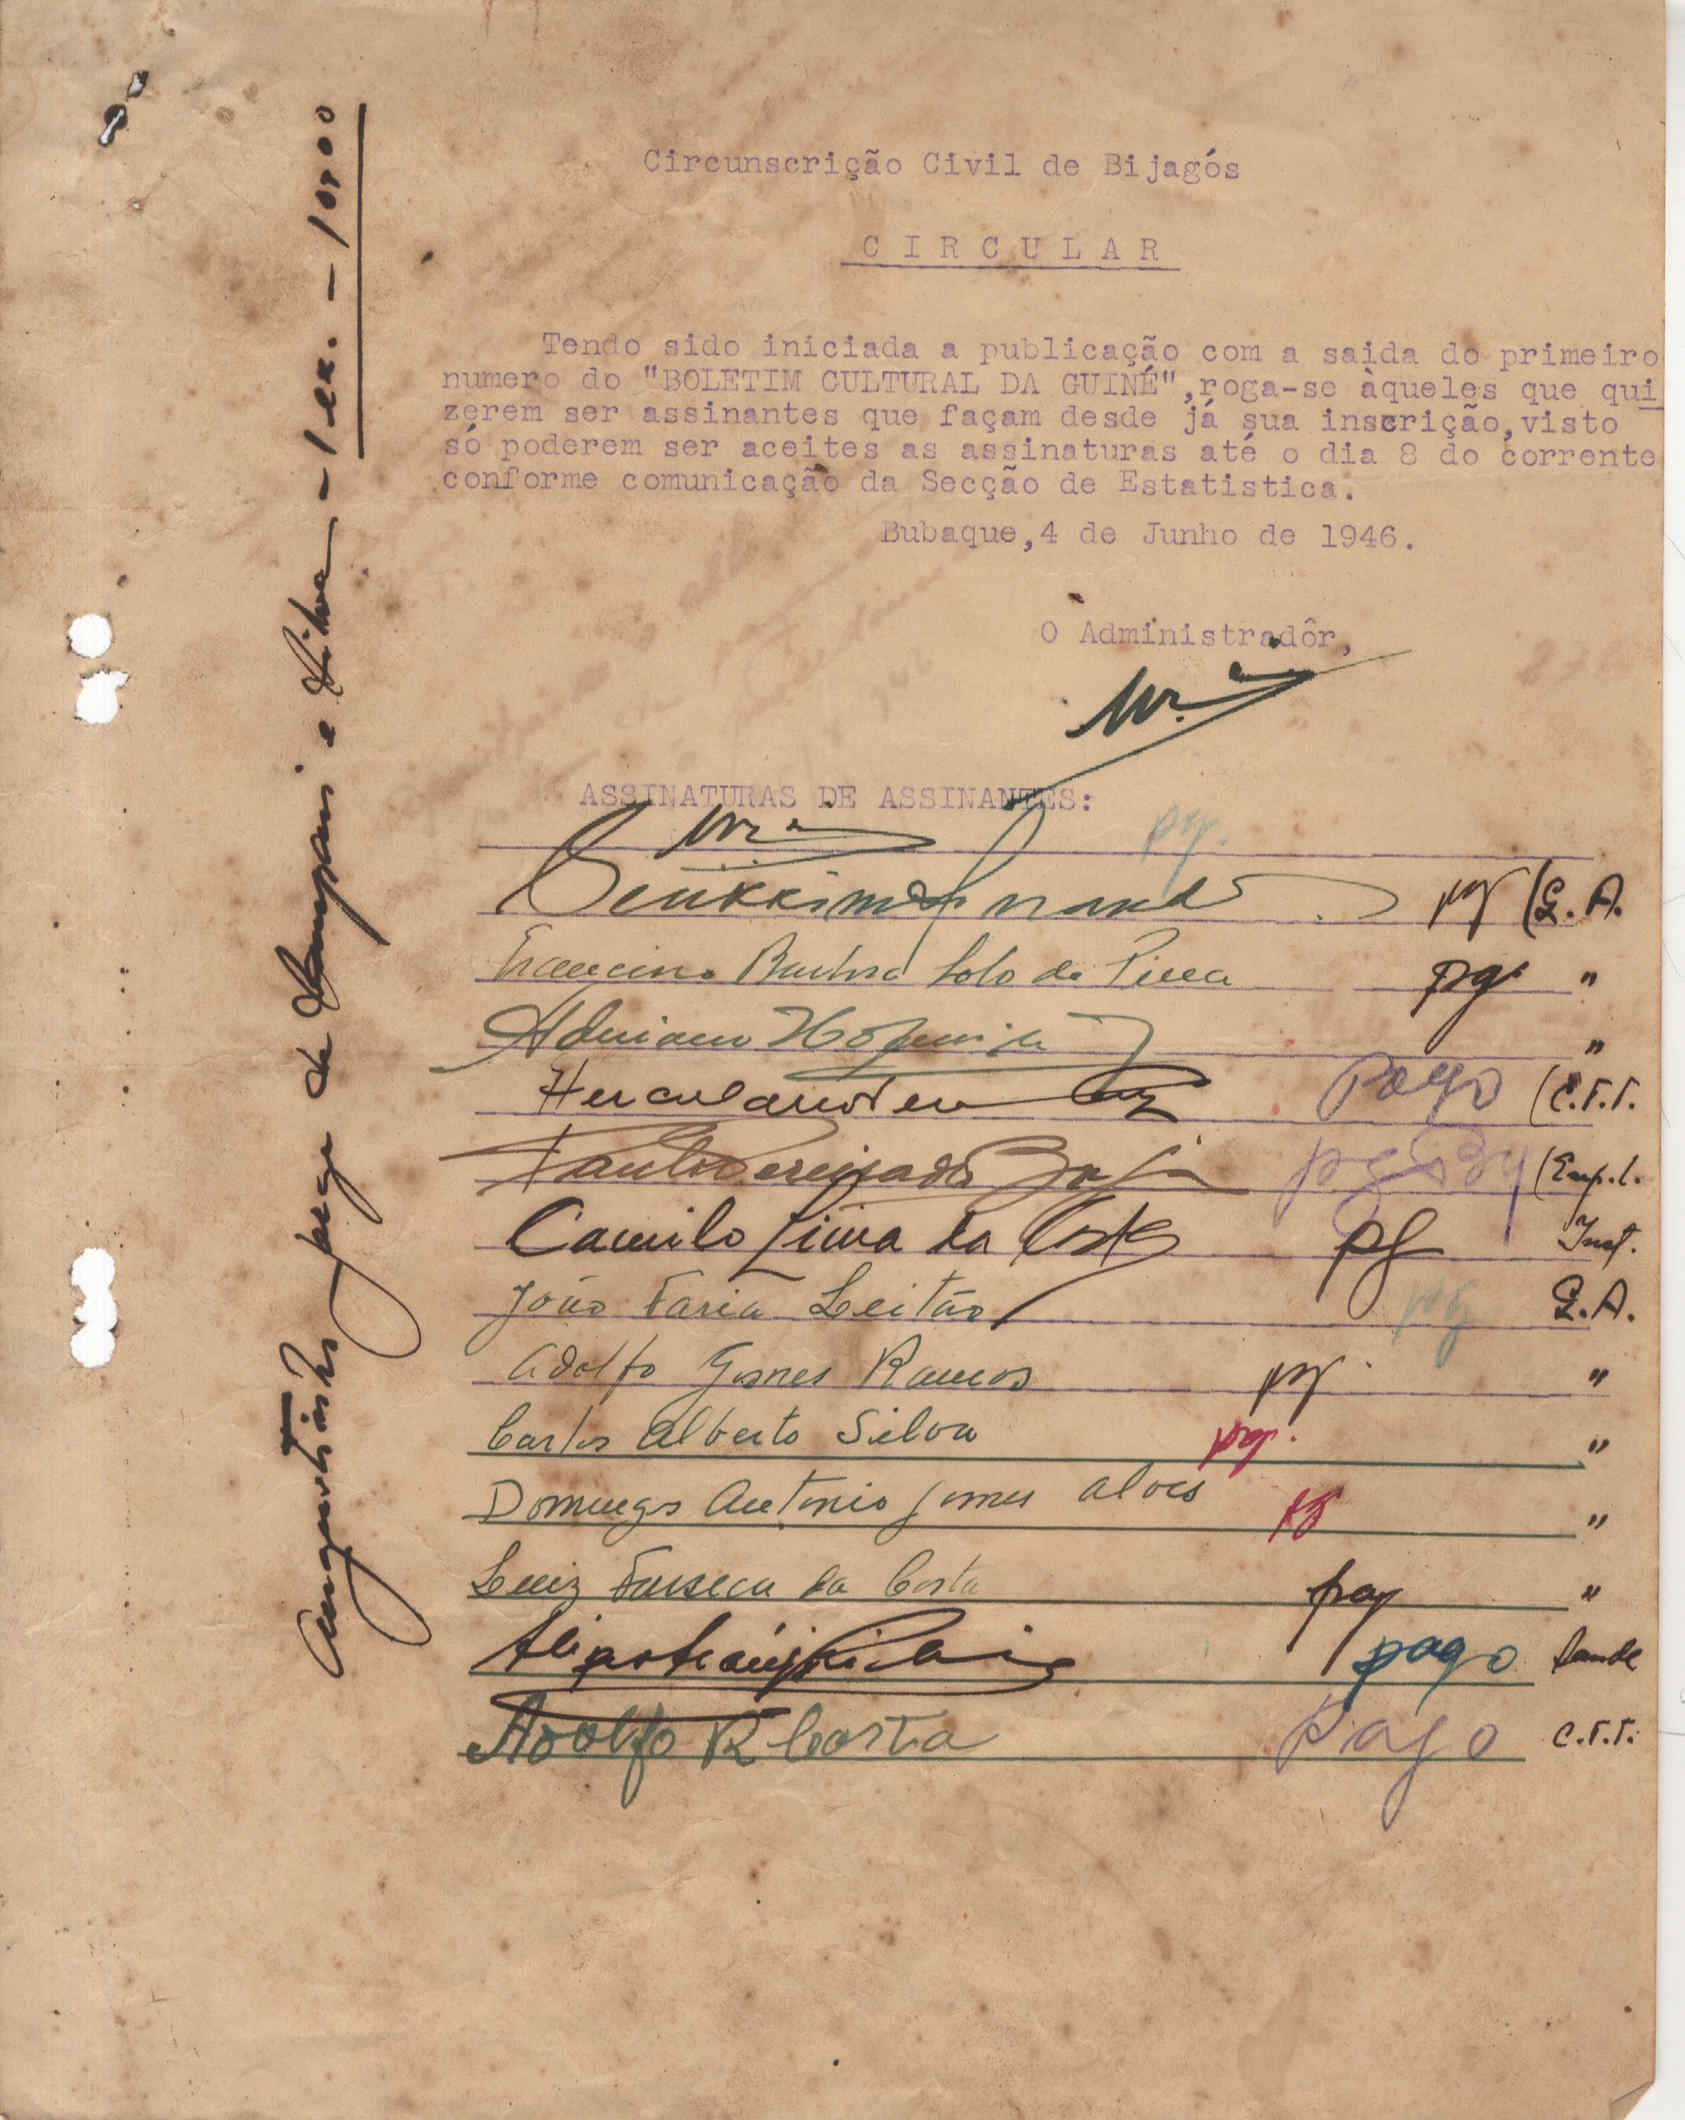 Circunscrição Civil de Bijagós
CIRCULAR
Tendo sido iniciada a publicação com a saida do primeiro
numero do "BOLETIM CULTURAL DA GUINÉ",roga-se àqueles que qui
zerem ser assinantes que façam desde já sua inscrição,visto
só poderem ser aceites as assinaturas até o dia 8 do corrente
conforme comunicação da Secção de Estatistica.
Bubaque,4 de Junho de 1946.
O Administradôr,
ASSINATURAS DE ASSINANTES:
pg.
pg (Q. A.
pg "
Adriano "
Herculano Pago (C.T.T.
Paulo Pereira da (Emp. C.
Camilo Lima da Costa pg Inst.
João Faria Leitão pg Q. A.
Adolfo Gomes Ramos pg. "
Carlos Alberto Silva pg. "
Domingos Antonio Gomes Alves pg "
Luiz Fonseca da Costa pag "
pago Saude
Adolfo R Costa Pago C.T.T.
Augustinho da e Silva - 1 ex. -